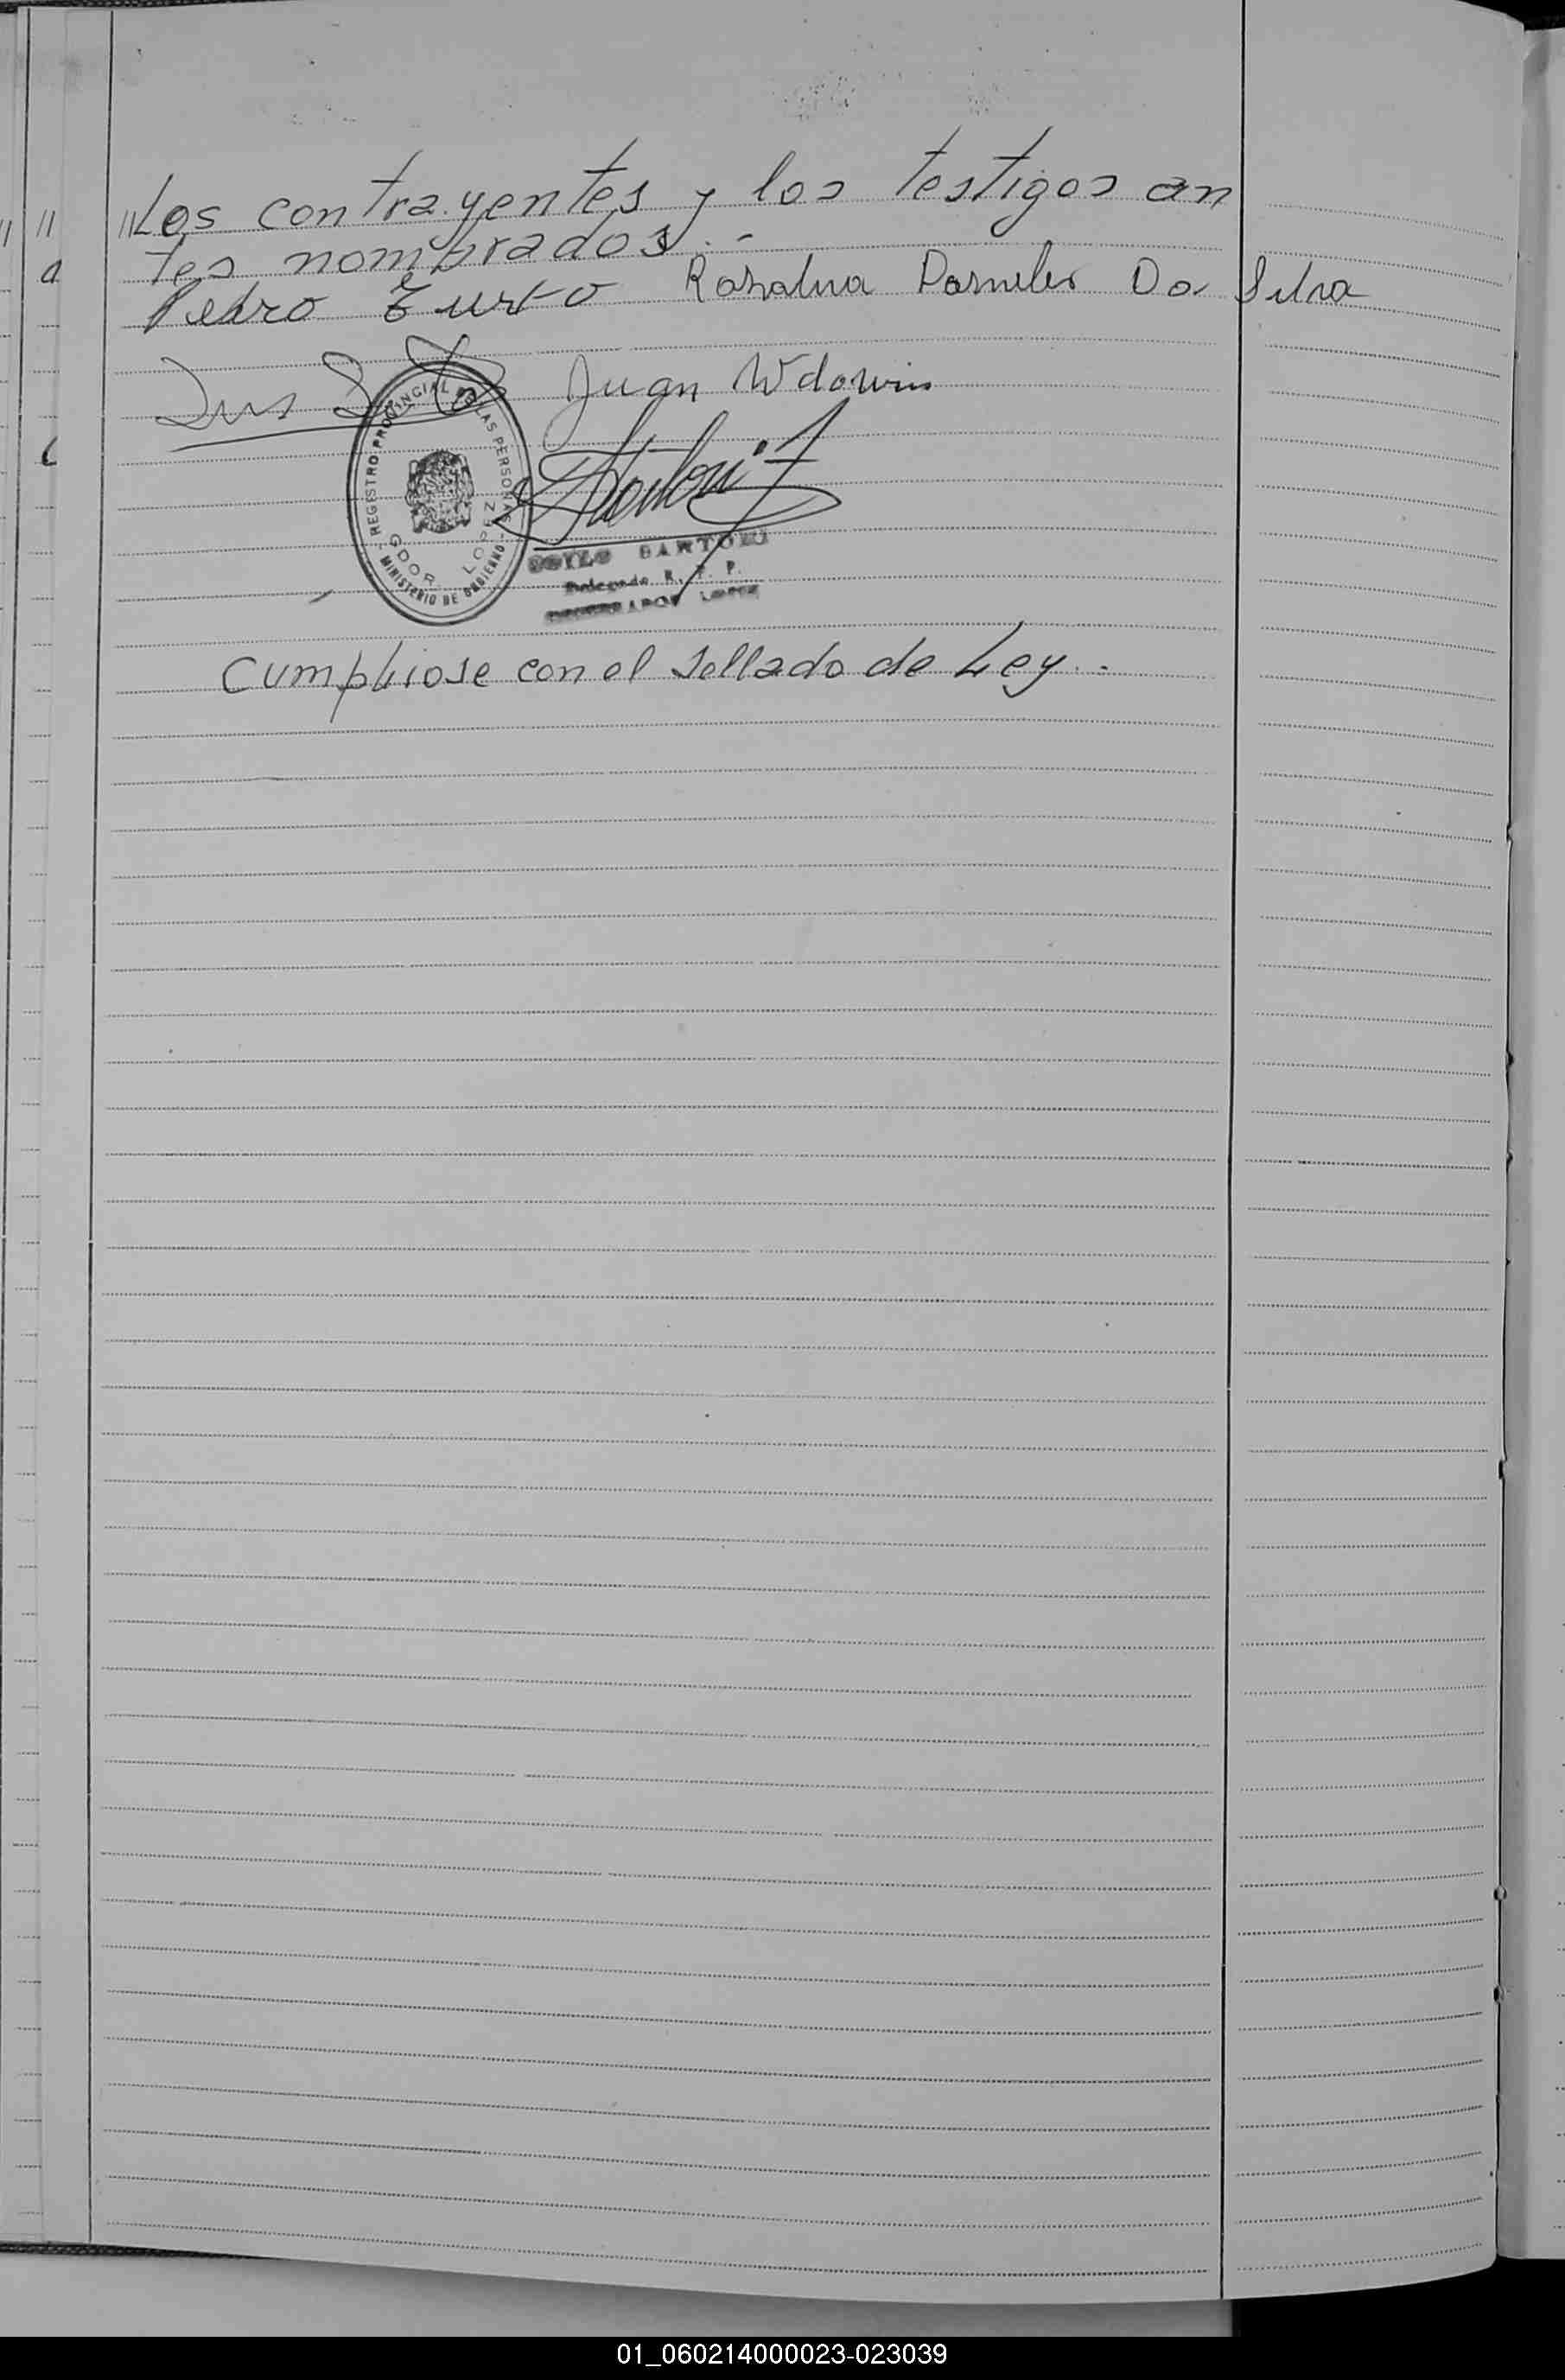 "Los contrayentes y los testigos an
tes nombrados.-
Pedro Rosalina Da Silva
Luis Juan Wdowin
REGISTRO PROVINCIAL DE LAS PERSONAS
GDOR LOPEZ
MINISTERIO DE GOBIERNO
BARTOLI
Delegado R. P. P.
GOBERNADOR LOPEZ
Cumpliose con el sellado de Ley.-
01_060214000023-023039